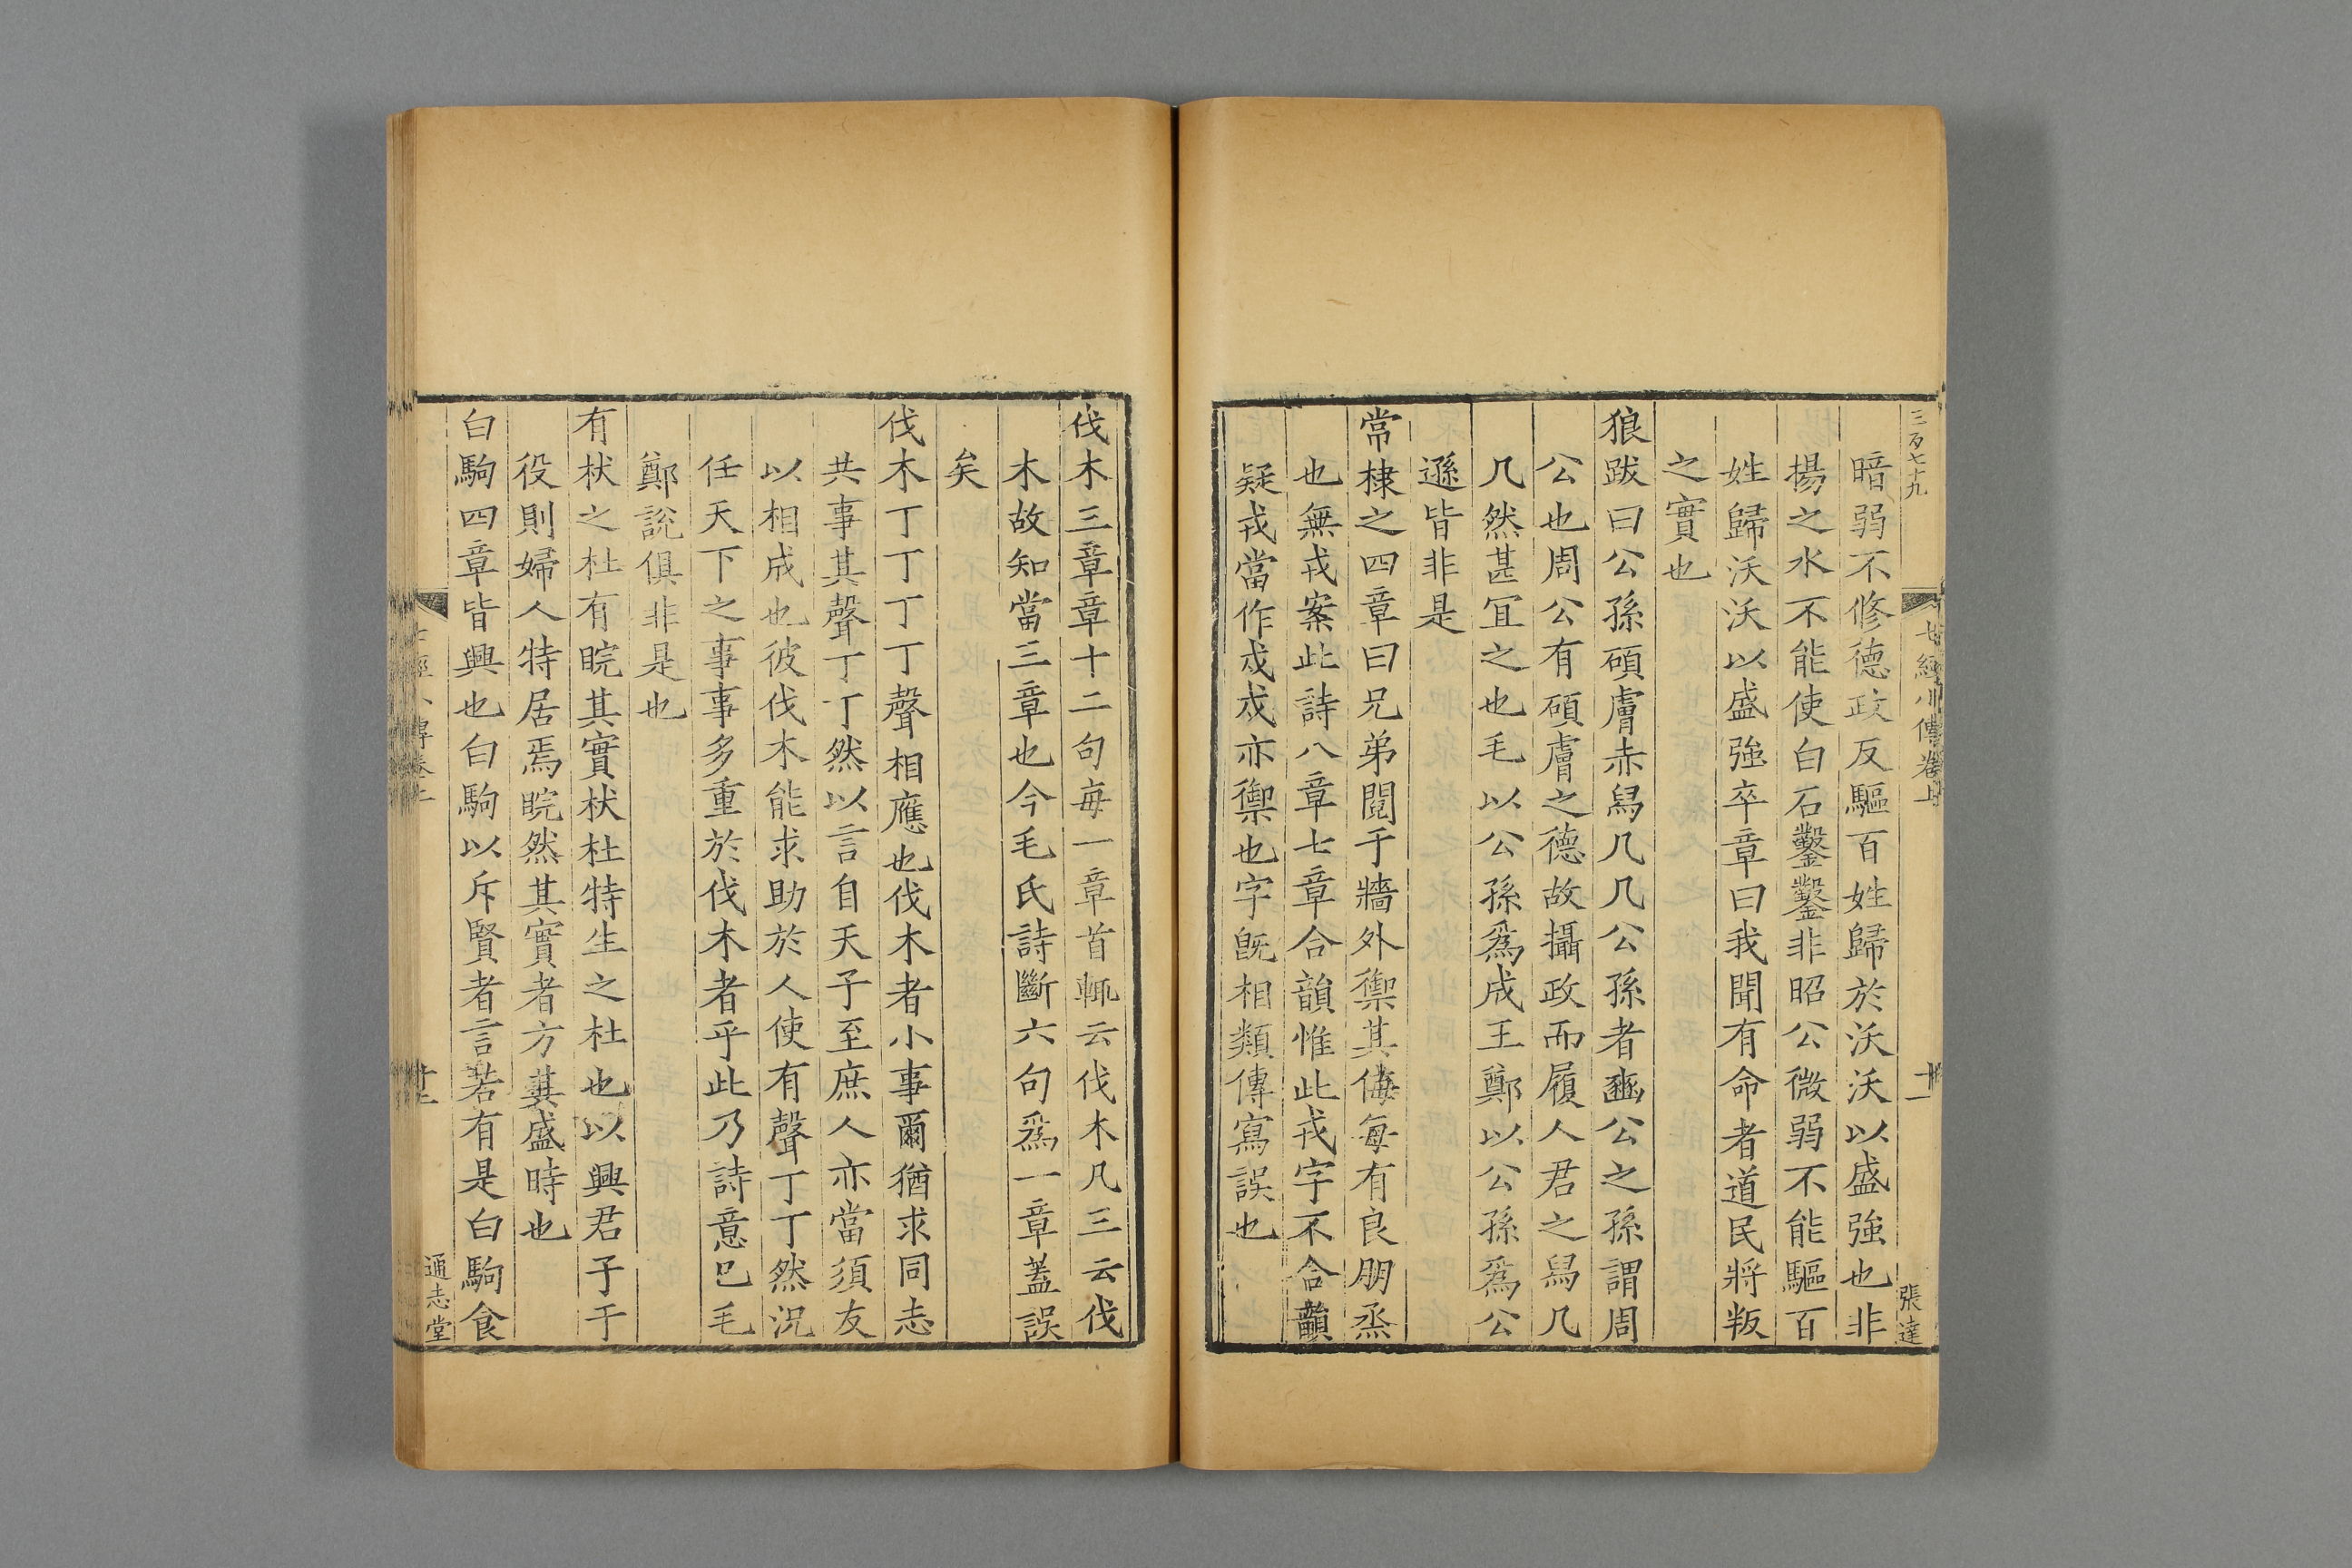 三百七十九
七經小傳卷上
十一
張達
暗弱不修德政反驅百姓歸於沃沃以盛強也非
揚之水不能使白石鑿鑿非昭公微弱不能驅百
姓歸沃沃以盛強卒章曰我聞有命者道民將叛
之實也
狼跋曰公孫碩膚赤舄几几公孫者豳公之孫謂周
公也周公有碩膚之德故攝政而履人君之舄几
几然甚宜之也毛以公孫爲成王鄭以公孫爲公
遜皆非是
常棣之四章曰兄弟鬩于牆外禦其侮每有良朋烝
也無戎案此詩八章七章合韻惟此戎字不合韻
疑戎當作戍戍亦禦也字旣相類傳寫誤也
伐木三章章十二句每一章首輒云伐木凡三云伐
木故知當三章也今毛氏詩斷六句爲一章蓋誤
矣
伐木丁丁丁丁聲相應也伐木者小事爾猶求同志
共事其聲丁丁然以言自天子至庶人亦當須友
以相成也彼伐木能求助於人使有聲丁丁然況
任天下之事事多重於伐木者乎此乃詩意已毛
鄭說俱非是也
有杕之杜有睆其實杕杜特生之杜也以興君子于
役則婦人特居焉睆然其實者方冀盛時也
白駒四章皆興也白駒以斥賢者言若有是白駒食
通志堂